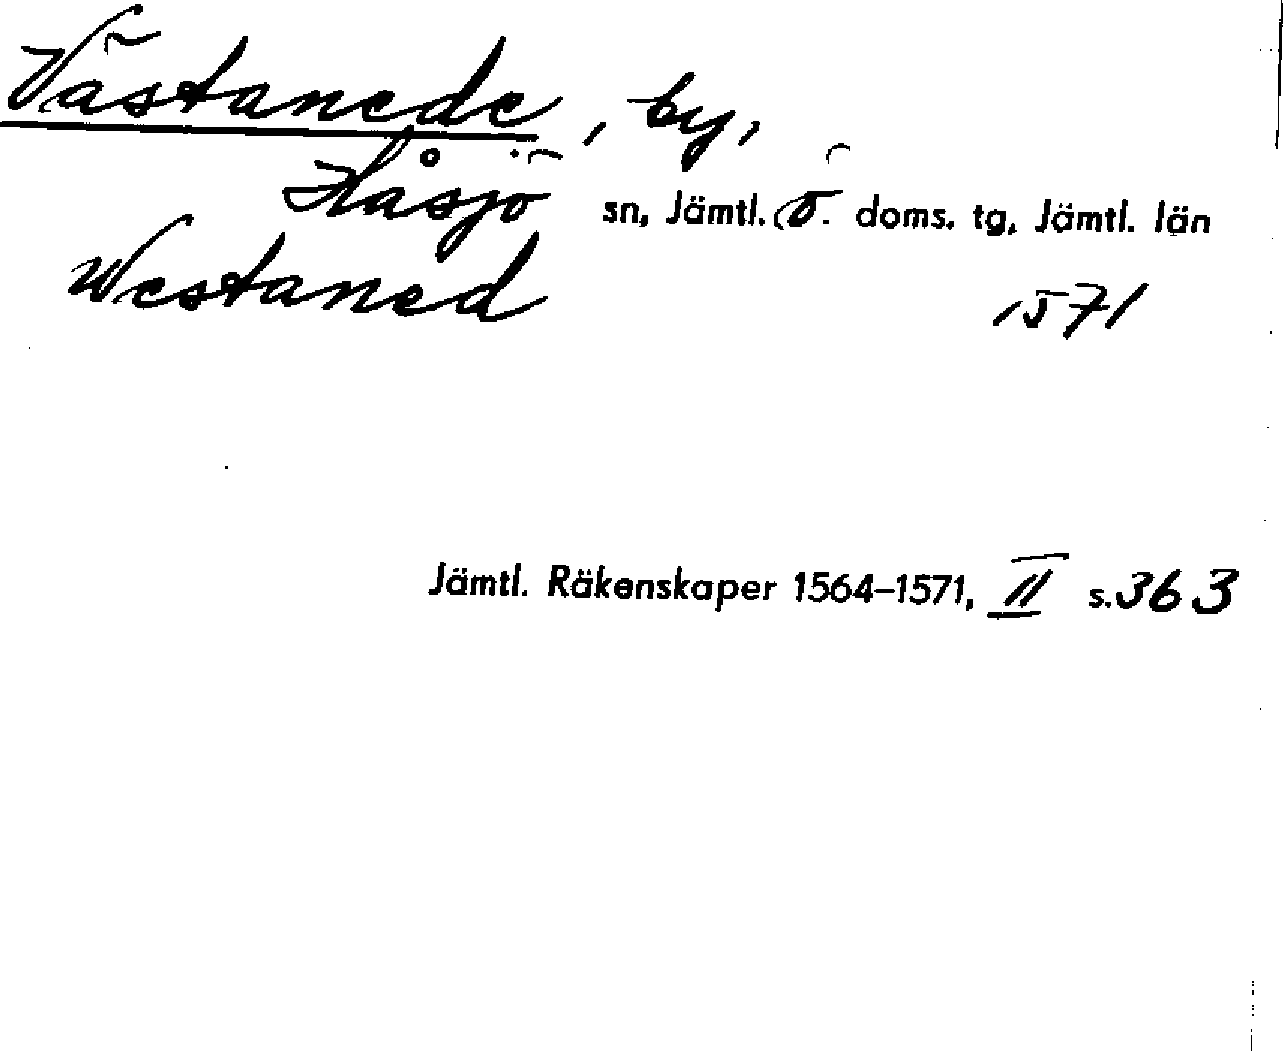 Västanede, by,
Håsjö sn, Jämtl. ö. doms. tg, Jämtl. län
Westaned 1571
Jämtl. Räkenskaper 1564–1571, II s. 363